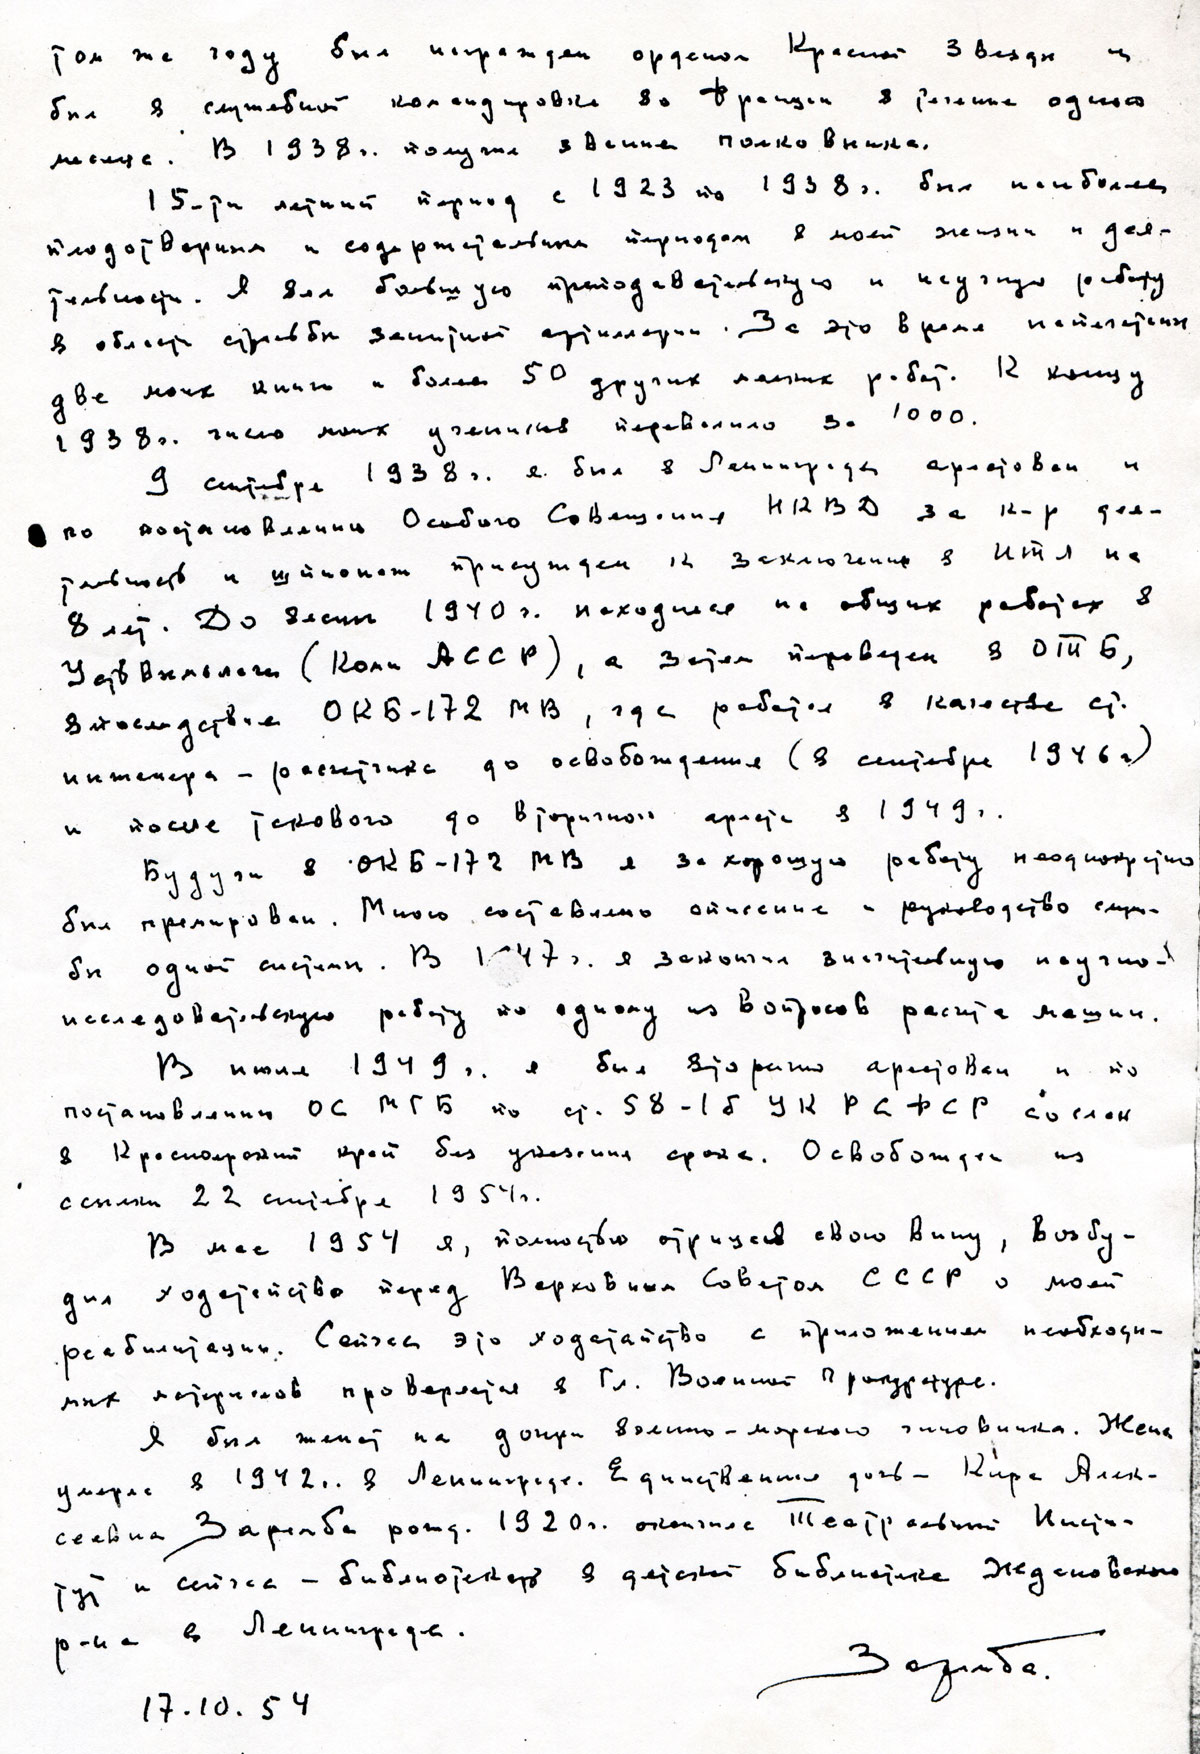 том же году был награжден орденом Красной Звезды и
был в служебной командировке во Франции в течение одного
месяца. В 1938 г. получил звание полковника.
15-ти летний период с 1923 по 1938 г. был наиболее
плодотворным и содержательным периодом в моей жизни и дея-
тельности. Я вел большую преподавательскую и научную работу
в области стрельбы зенитной артиллерии. За это время напечатаны
две моих книги и более 50 других мелких работ. К концу
1938 г. число моих учеников перевалило за 1000.
9 сентября 1938 г. я был в Ленинграде арестован и
по постановлению Особого Совещания НКВД за к-р дея-
тельность и шпионаж присужден к заключению в ИТЛ на
8 лет. До весны 1940 г. находился на общих работах в
Устьвымлаге (Коми АССР), а затем переведен в ОТБ,
впоследствии ОКБ-172 МВ, где работал в качестве ст.
инженера - расчетчика до освобождения (в сентябре 1946 г)
и после такового до вторичного ареста в 1949 г.
Будучи в ОКБ-172 МВ я за хорошую работу неоднократно
был премирован. Мною составлено описание и руководство служ-
бы одной системы. В 1947 г. я закончил значительную научно-
исследовательскую работу по одному из вопросов расчета машин.
В июле 1949 г. я был вторично арестован и по
постановлению ОС МГБ по ст. 58-1б УК РСФСР сослан
в Красноярский край без указания срока. Освобожден из
ссылки 22 сентября 1954 г.
В мае 1954 я, полностью отрицая свою вину, возбу-
дил ходатайство перед Верховным Советом СССР о моей
реабилитации. Сейчас это ходатайство с приложением необходи-
мых материалов проверяется в Гл. Военной Прокуратуре.
Я был женат на дочери военно-морского чиновника. Жена
умерла в 1942 г. в Ленинграде. Единственная дочь - Кира Алек-
сеевна Заремба рожд. 1920 г. окончила Театральный Инсти-
тут и сейчас - библиотекарь в детской библиотеке Ждановского
р-на в Ленинграде.
Заремба.
17.10.54